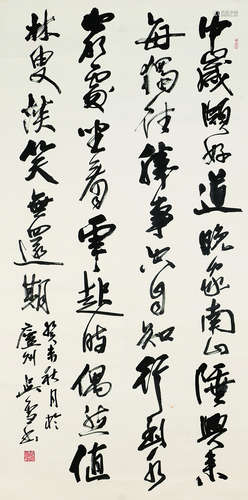 中歲頗好道晚家南山陲興來
每獨往勝事空自知行到水
窮處坐看雲起時偶然值
林叟談笑無還期
癸未秋月於
廬州